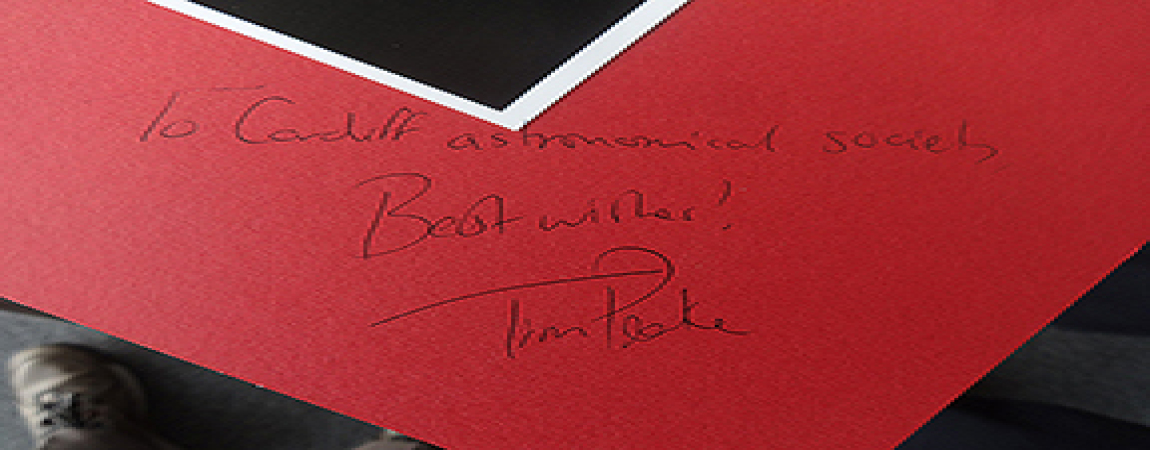 To Cardiff astronomical society
Best wishes!
Tim Peake